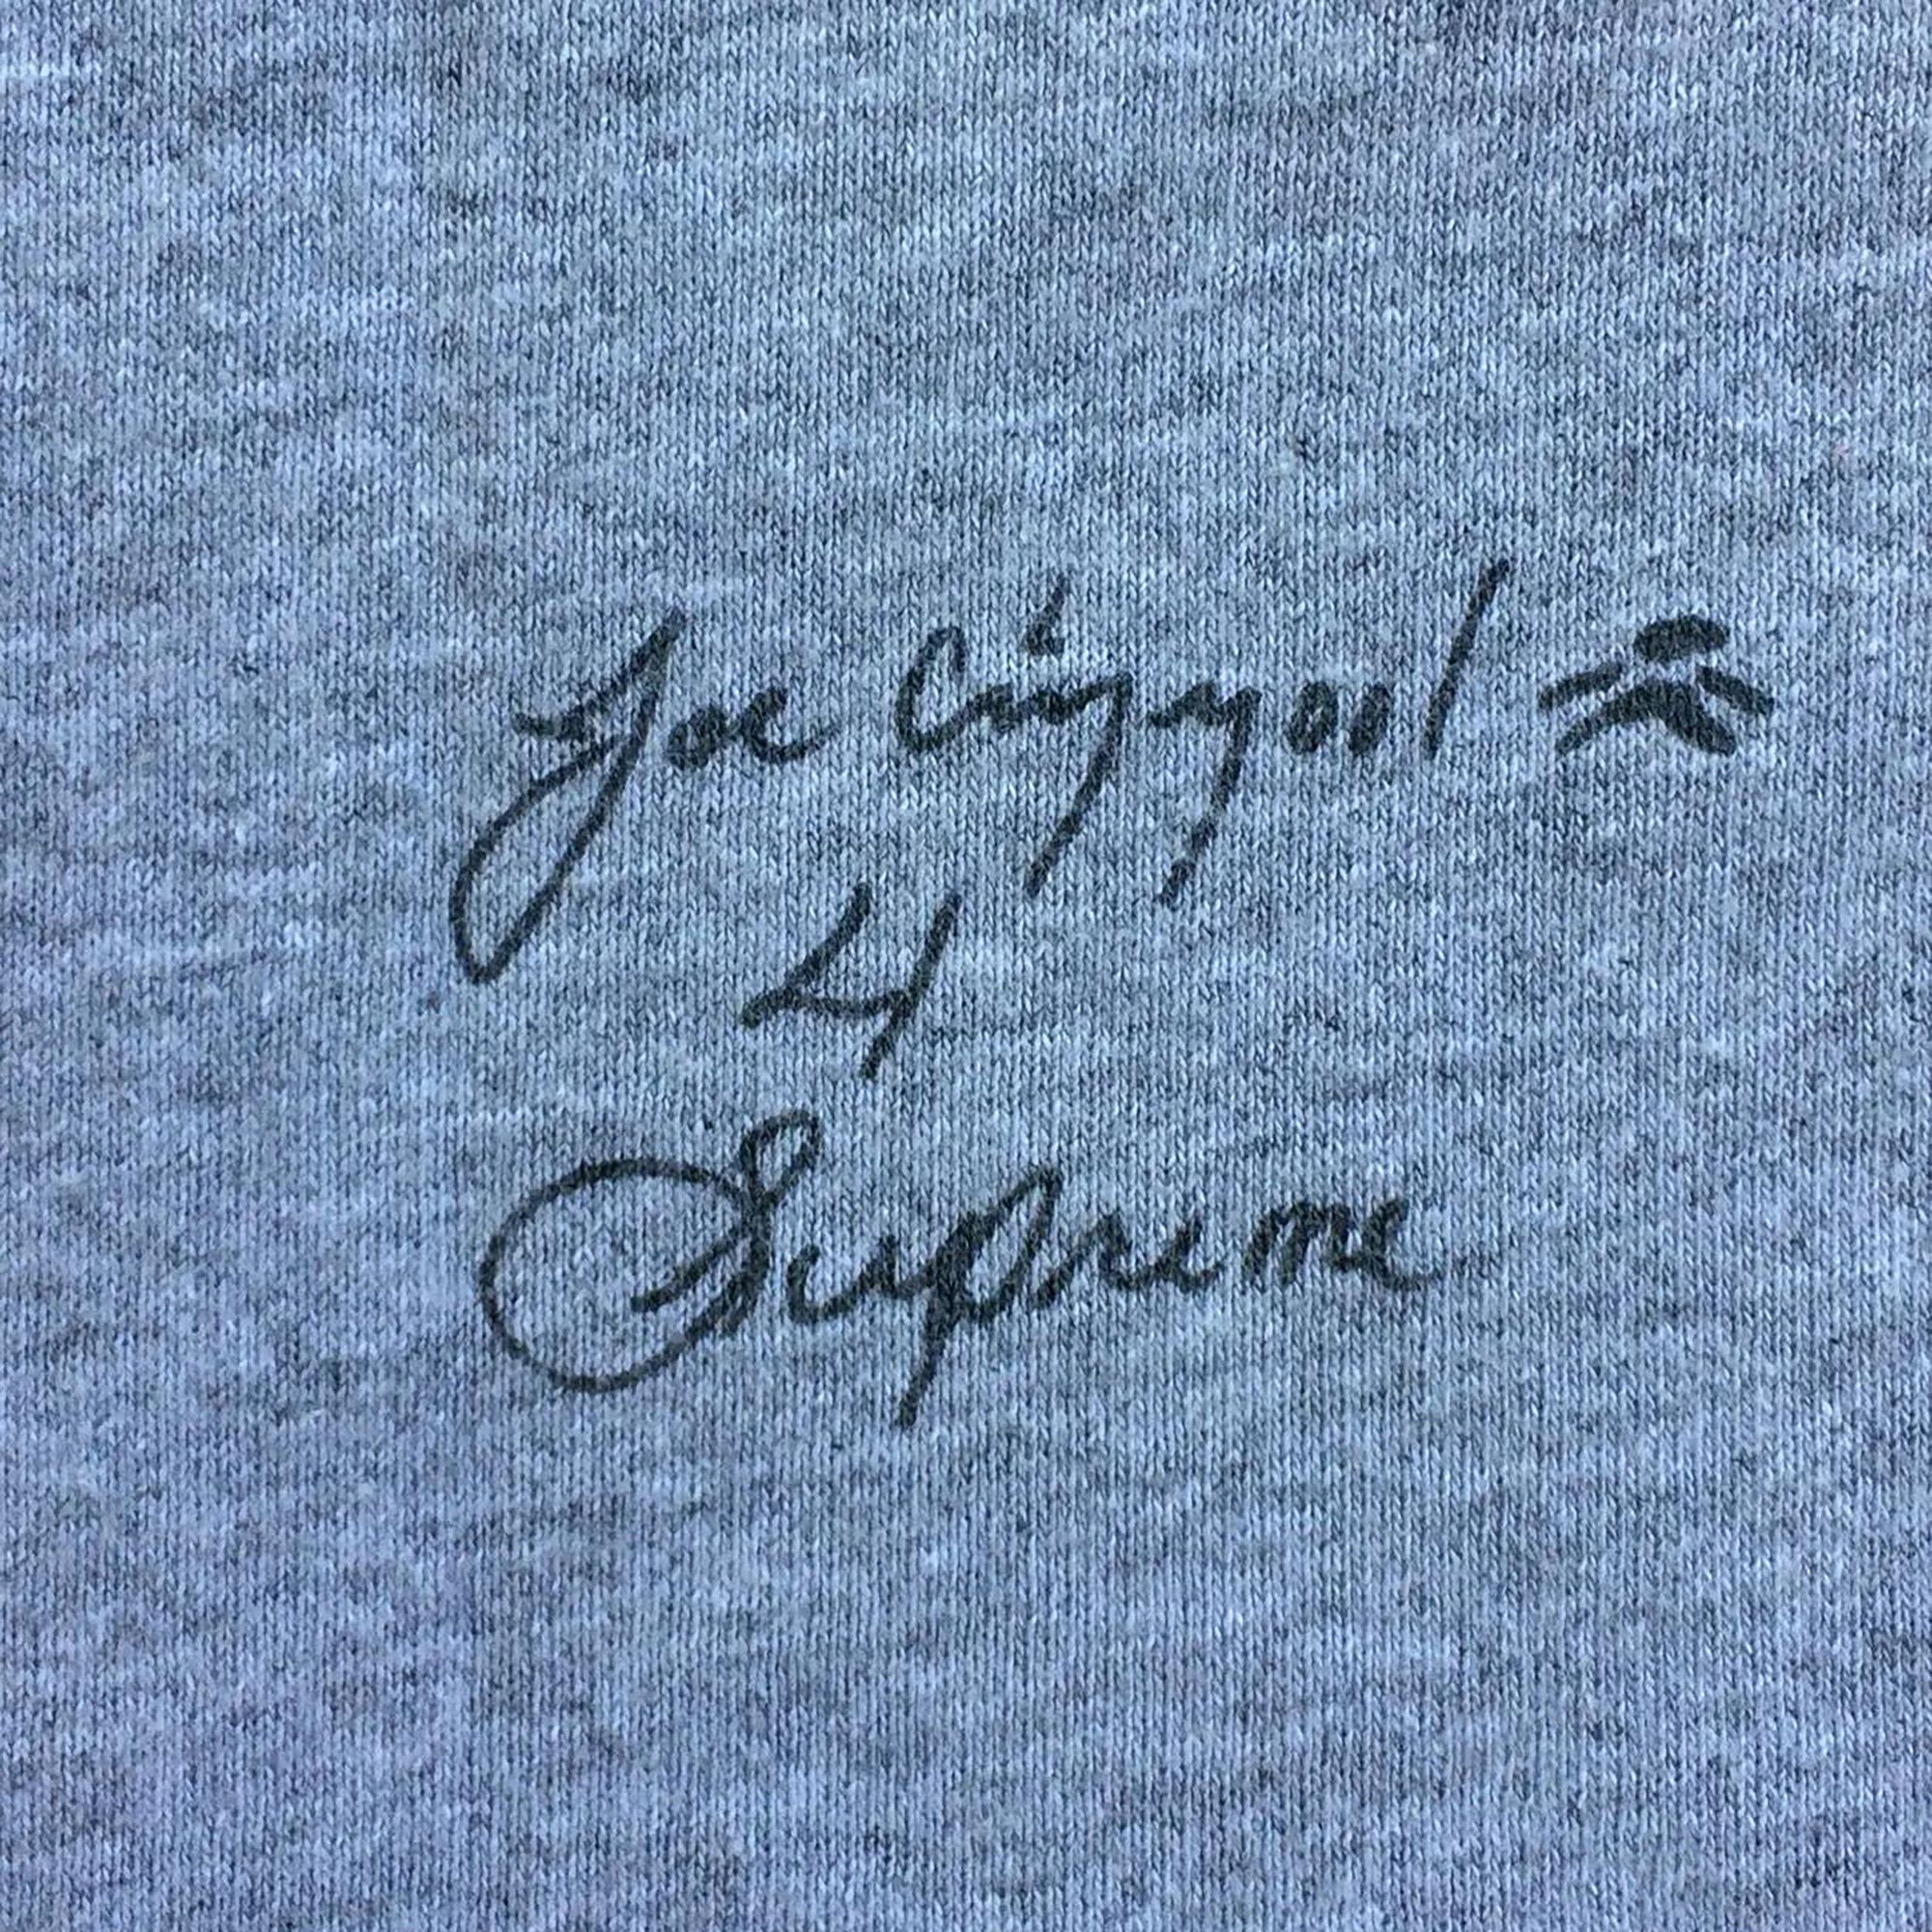 Joe Cizzool
4
Supreme